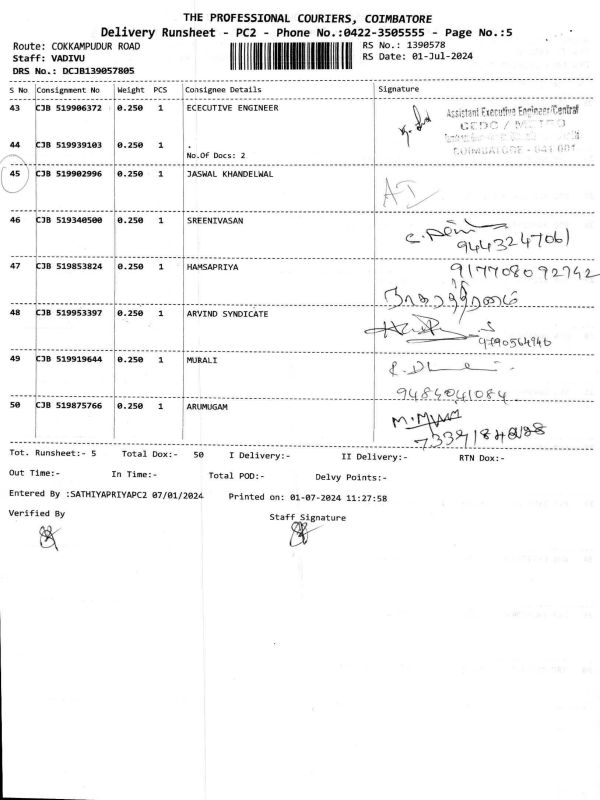 THE PROFESSIONAL COURIERS, COIMBATORE
Delivery Runsheet - PC2 - Phone No.:0422-3505555 - Page No.:5
Route: COKKAMPUDUR ROAD RS No.: 1390578
Staff: VADIVU RS Date: 01-Jul-2024
DRS No.: DCJB139057805
S No Consignment No Weight PCS Consignee Details Signature
43 CJB 519906372 0.250 1 ECECUTIVE ENGINEER
Assistant Executive Engineer/Central
CEDC / METRO
COIMBATORE - 641 001
44 CJB 519939103 0.250 1 .
No.Of Docs: 2
45 CJB 519902996 0.250 1 JASWAL KHANDELWAL
46 CJB 519340500 0.250 1 SREENIVASAN
9443247061
47 CJB 519853824 0.250 1 HAMSAPRIYA 917708092742
48 CJB 519953397 0.250 1 ARVIND SYNDICATE
9790564946
49 CJB 519919644 0.250 1 MURALI
9484041084
50 CJB 519875766 0.250 1 ARUMUGAM
Tot. Runsheet:- 5 Total Dox:- 50 I Delivery:- II Delivery:- RTN Dox:-
Out Time:- In Time:- Total POD:- Delvy Points:-
Entered By :SATHIYAPRIYAPC2 07/01/2024 Printed on: 01-07-2024 11:27:58
Verified By Staff Signature